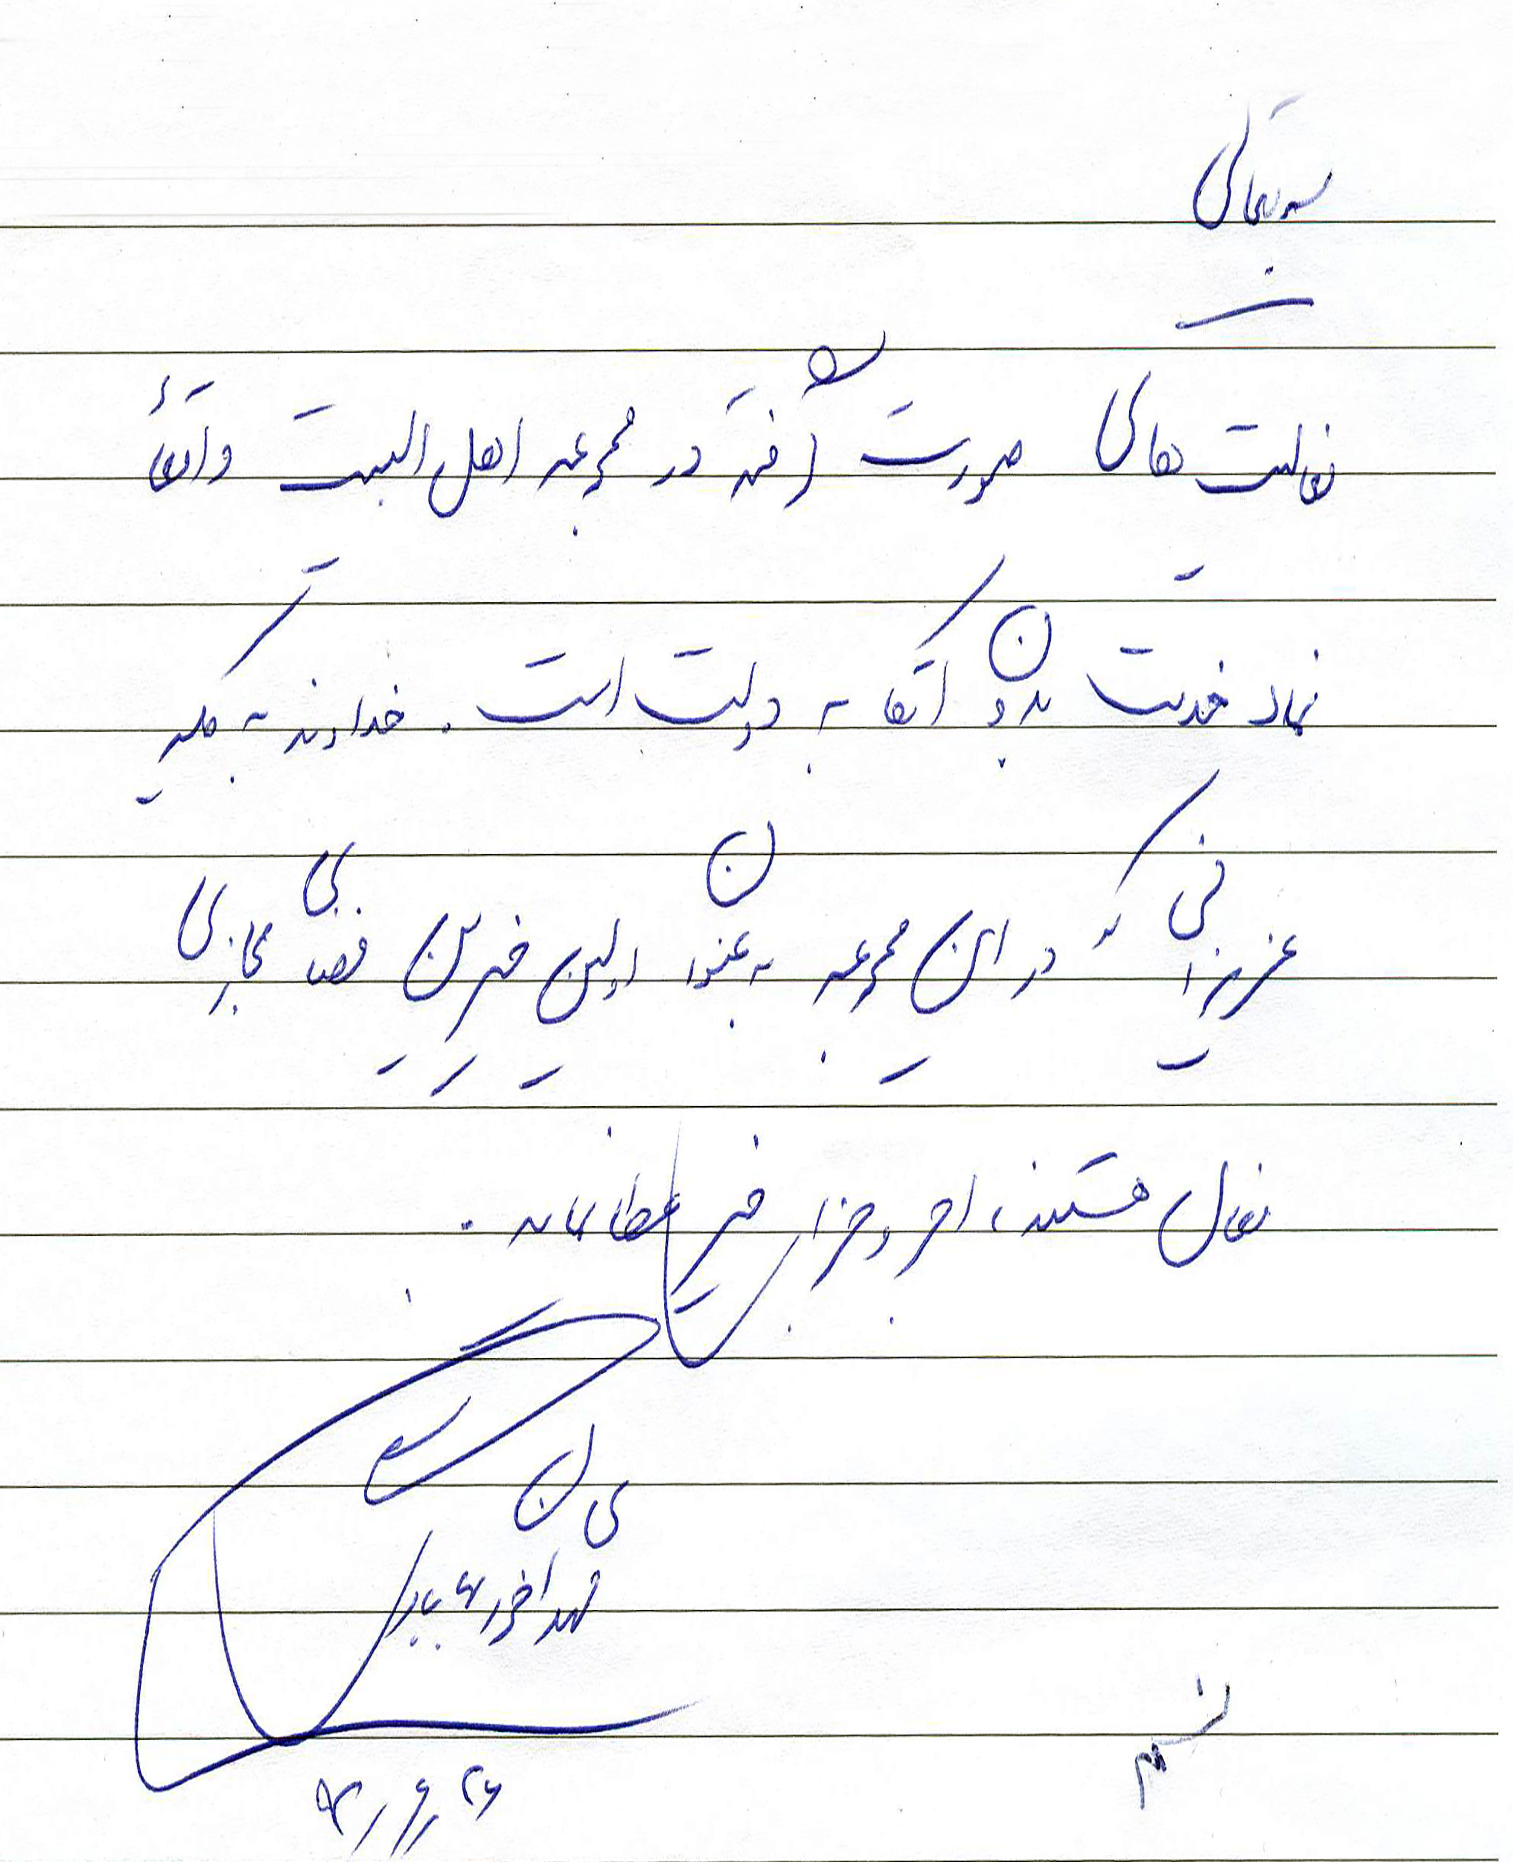 بسمه تعالی
فعالیت های صورت گرفته در مجموعه اهل البیت واقعاً
نماد خدمت بدون اتکا به دولت است. خداوند به کلیه
عزیزانی که در این مجموعه به عنوان اولین خیرین فضای مجازی
فعال هستند، اجر و جزای خیر عطا نماید.
۹۳/۶/۲۶